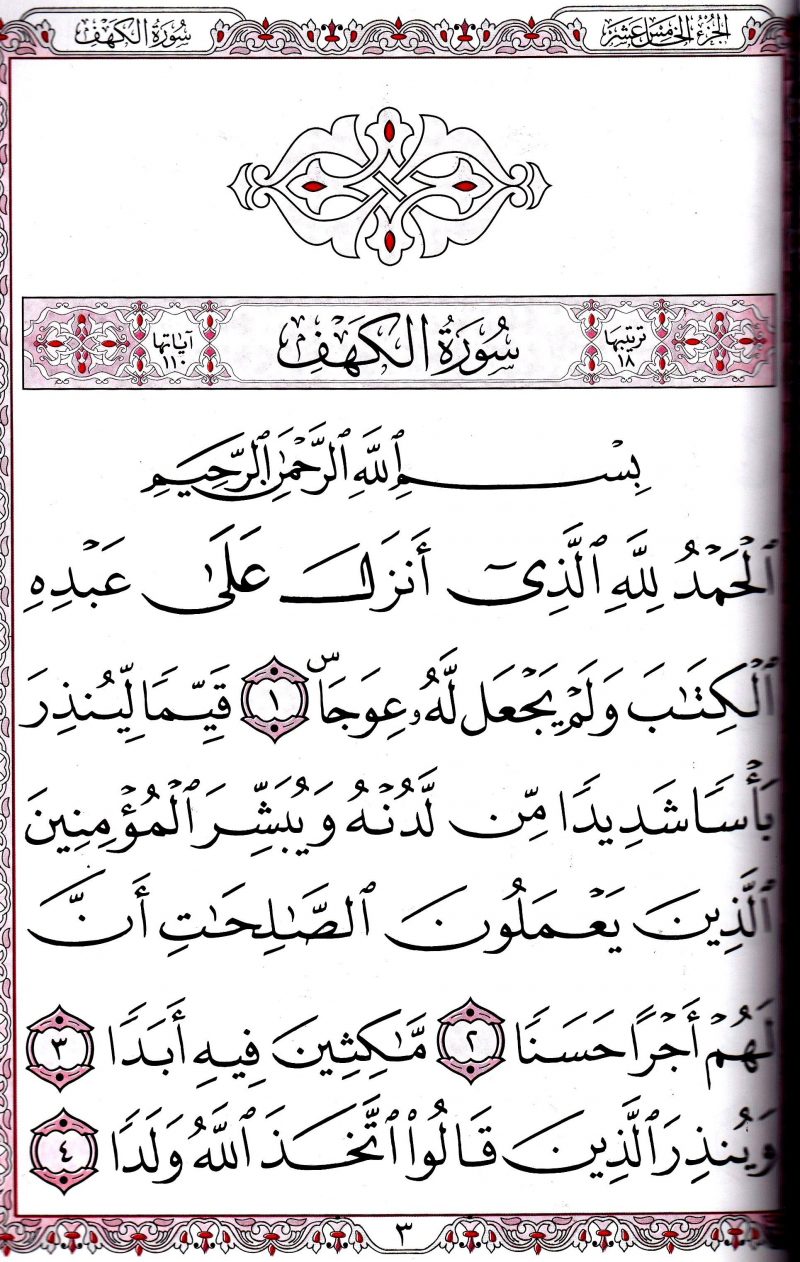 الجزء الخامس عشر
سورة الكهف
ترتيبها ١٨
سُورَةُ الكَهْفِ
آياتها ١١٠
بِسْمِ ٱللَّهِ ٱلرَّحْمَٰنِ ٱلرَّحِيمِ
ٱلْحَمْدُ لِلَّهِ ٱلَّذِىٓ أَنزَلَ عَلَىٰ عَبْدِهِ
ٱلْكِتَٰبَ وَلَمْ يَجْعَل لَّهُۥ عِوَجَاۜ ١ قَيِّمًا لِّيُنذِرَ
بَأْسًا شَدِيدًا مِّن لَّدُنْهُ وَيُبَشِّرَ ٱلْمُؤْمِنِينَ
ٱلَّذِينَ يَعْمَلُونَ ٱلصَّٰلِحَٰتِ أَنَّ
لَهُمْ أَجْرًا حَسَنًا ٢ مَّٰكِثِينَ فِيهِ أَبَدًا ٣
وَيُنذِرَ ٱلَّذِينَ قَالُوا۟ ٱتَّخَذَ ٱللَّهُ وَلَدًا ٤
٣